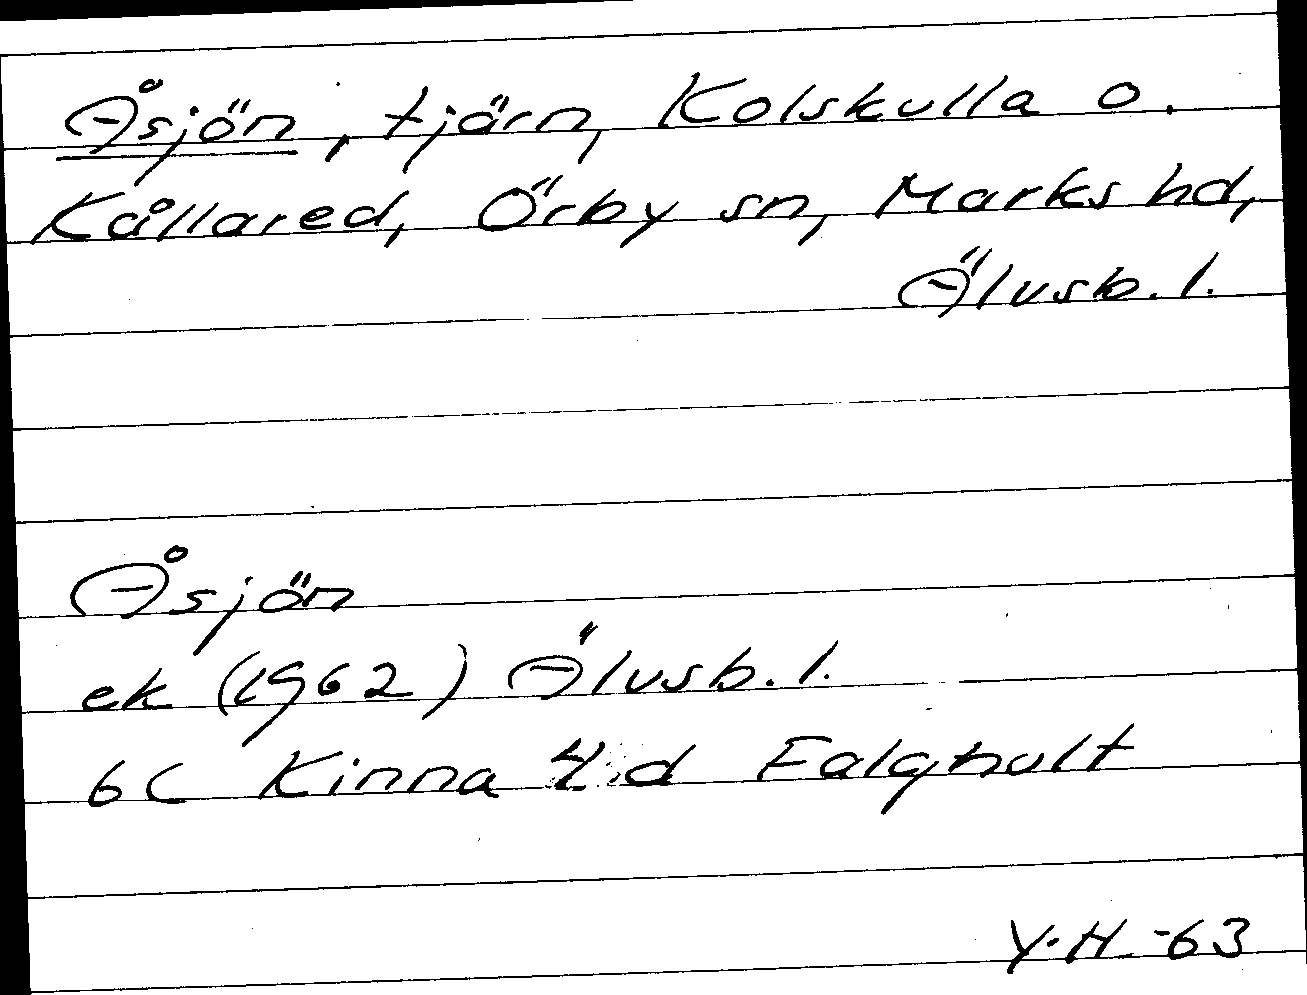 Åsjön, tjärn, Kolskulla o.
Kållared, Örby sn, Marks hd,
Älvsb. l.
Åsjön
ek (1962) Älvsb. l.
6C Kinna 4 d Falghult
Y.H. -63